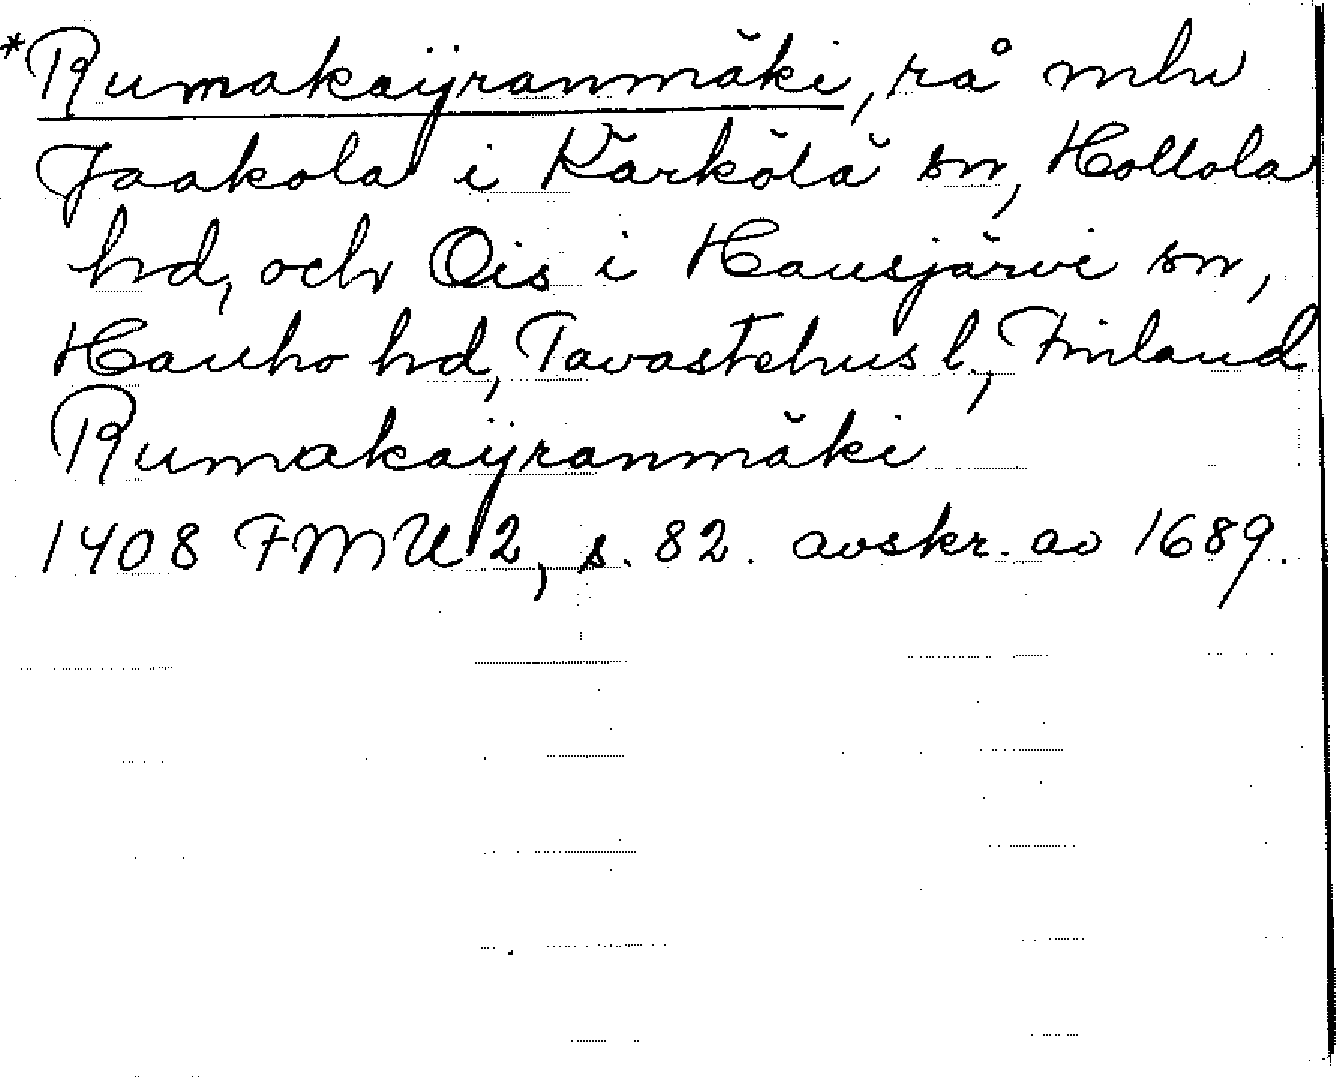 *Rumakaÿranmäki, rå mln
Jaakola i Kärkölä sn, Hollola
hd, och Ois i Hausjärvi sn,
Hauho hd, Tavastehus l, Finland
Rumakaÿranmäki
1408 FMU 2, s. 82. avskr. av 1689.